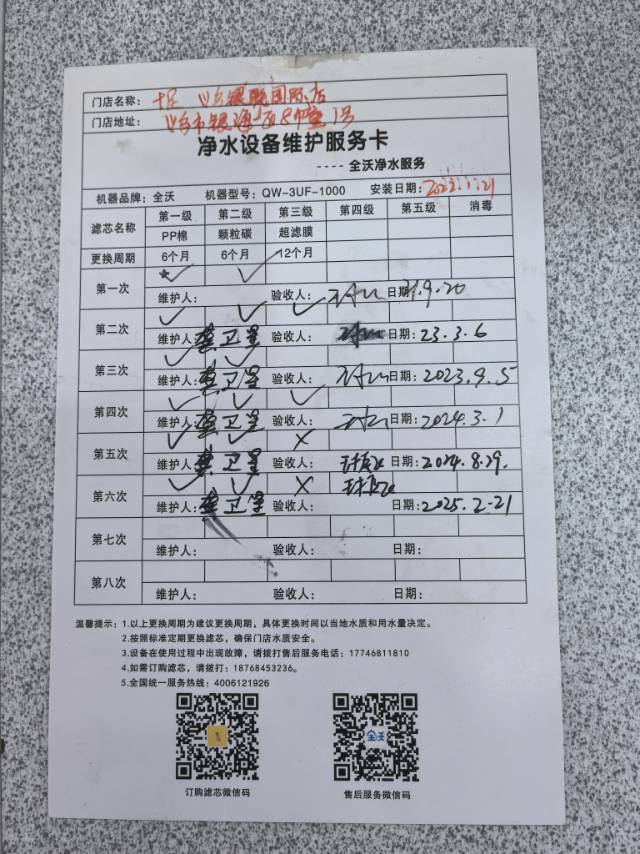 门店名称：义乌银
门店地址：义乌市银海 1号
净水设备维护服务卡
----全沃净水服务
机器品牌：全沃 机器型号：QW-3UF-1000 安装日期：
滤芯名称 第一级 第二级 第三级 第四级 第五级 消毒
PP棉 颗粒碳 超滤膜
更换周期 6个月 6个月 12个月
第一次 ✓ ✓
维护人： 验收人： 日期 9.20
第二次 ✓ ✓ ✓
维护人：龚卫星 验收人： 日期：23.3.6
第三次 ✓ ✓
维护人：龚卫星 验收人： 日期：2023.9.5
第四次 ✓ ✓ ✓
维护人：龚卫星 验收人： 日期：2024.3.1
第五次 ✓ ✓ ×
维护人：龚卫星 验收人： 日期：2024.8.29.
第六次 ✓ ✓ ×
维护人：龚卫星 验收人： 日期：2025.2.21
第七次
维护人： 验收人： 日期：
第八次
维护人： 验收人： 日期：
温馨提示：1.以上更换周期为建议更换周期，具体更换时间以当地水质和用水量决定。
2.按照标准定期更换滤芯，确保门店水质安全。
3.设备在使用过程中出现故障，请拨打售后服务电话：17746811810
4.如需订购滤芯，请拨打：18768453236。
5.全国统一服务热线：4006121926
全沃
订购滤芯微信码 售后服务微信码